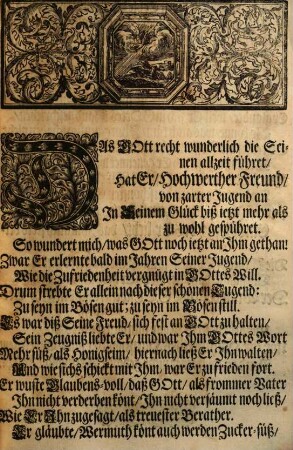 DAs GOtt recht wunderlich die Sei-
nen allzeit führet/
Hat Er/ Hochwerther Freund/
von zarter Jugend an
In Seinem Glück biß jetzt mehr als
zu wohl gespühret.
So wundert mich/ was GOtt noch jetzt an Ihm gethan!
Zwar Er erlernte bald im Jahren Seiner Jugend/
Wie die Zufriedenheit vergnügt in GOttes Will.
Drum strebte Er allein nach dieser schönen Tugend:
Zu seyn im Bösen gut; zu seyn im Bösen still.
Es war diß Seine Freud/ sich fest an GOtt zu halten/
Sein Zeugniß liebte Er/ und war Ihm GOttes Wort
Mehr süß/ als Honigseim/ hiernach ließ Er Ihn walten/
Und wie sichs schickt mit Ihm/ war Er zu frieden fort.
Er wuste Glaubens-voll/ daß GOtt/ als frommer Vater
Ihn nicht verderben könt/ Ihn nicht versäumt noch ließ/
Wie Er Ihn zugesagt/ als treuester Berather.
Er gläubte/ Wermuth könt auch werden Zucker-süß/